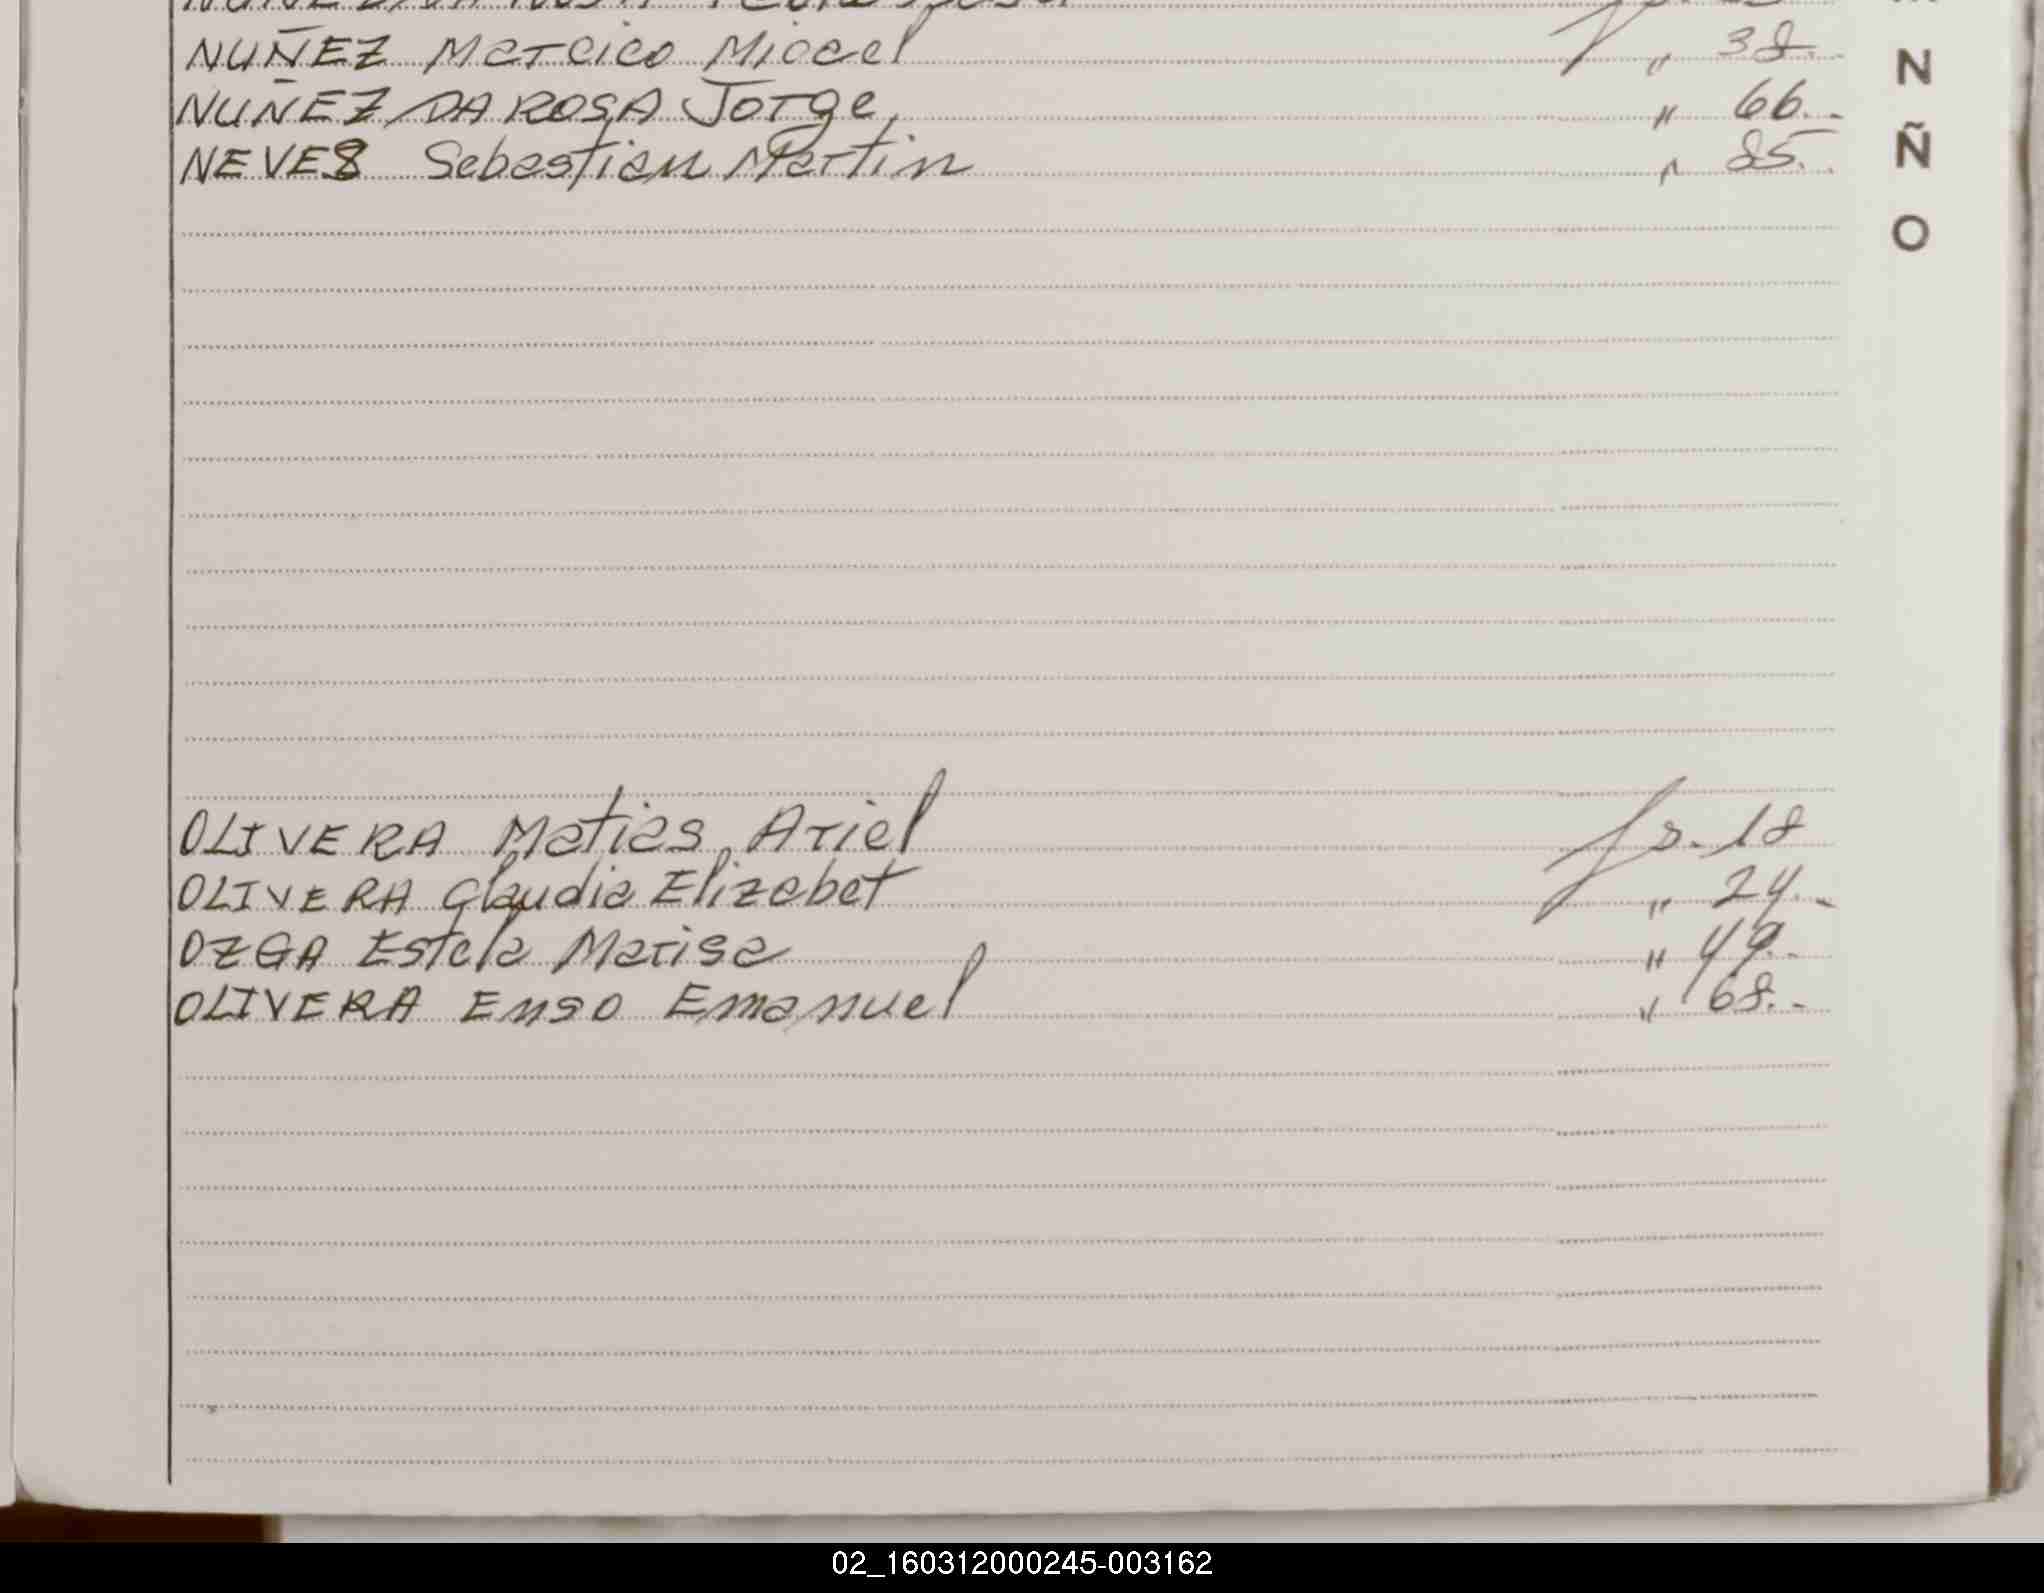 NUÑEZ Marcico Micael " 38.-
NUÑEZ DA ROSA Jorge " 66.-
NEVES Sebastian Martin " 85.-
N
Ñ
O
OLIVERA Matias Ariel fs. 18
OLIVERA Claudia Elizabet " 24.-
OZGA Estela Marisa " 49.-
OLIVERA Enso Emanuel " 68.-
02_160312000245-003162